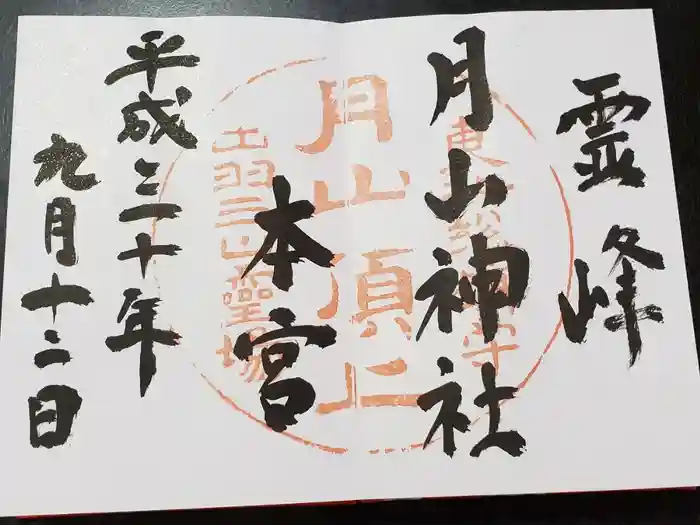 霊峰
月山神社
本宮
平成三十年
九月十二日
月山頂上
出羽三山霊場